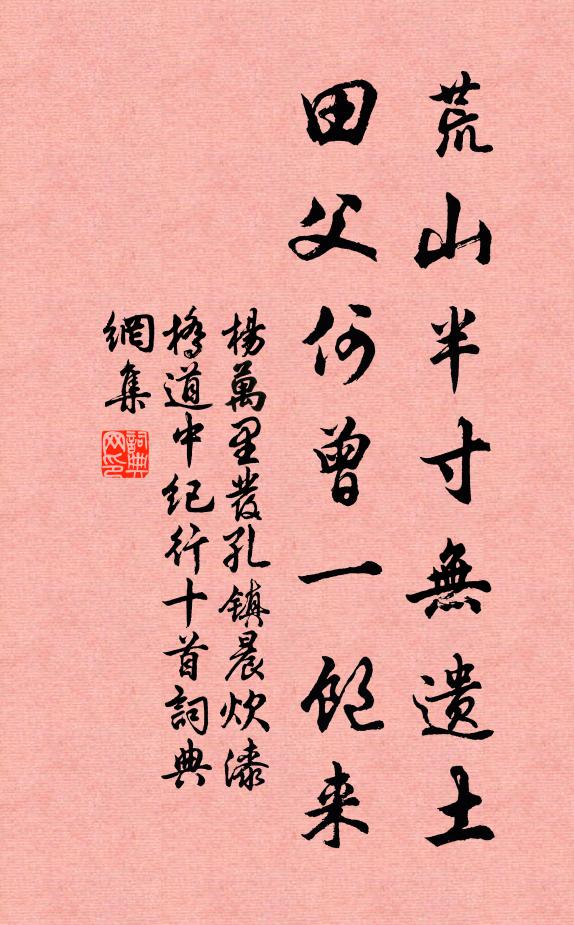 荒山半寸無遺土
田父何曾一飽来
楊萬里發孔鎮晨炊漆
橋道中紀行十首詞典
網集
詞典
网印